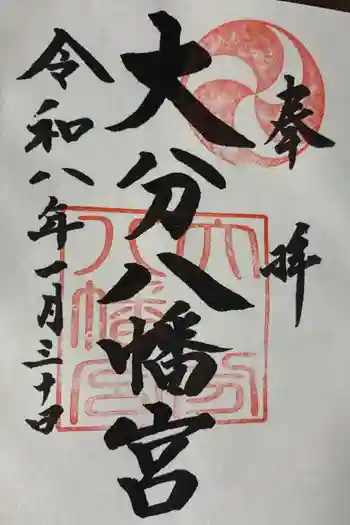 奉拝
大分八幡宮
令和八年一月三十日
大分八幡宮